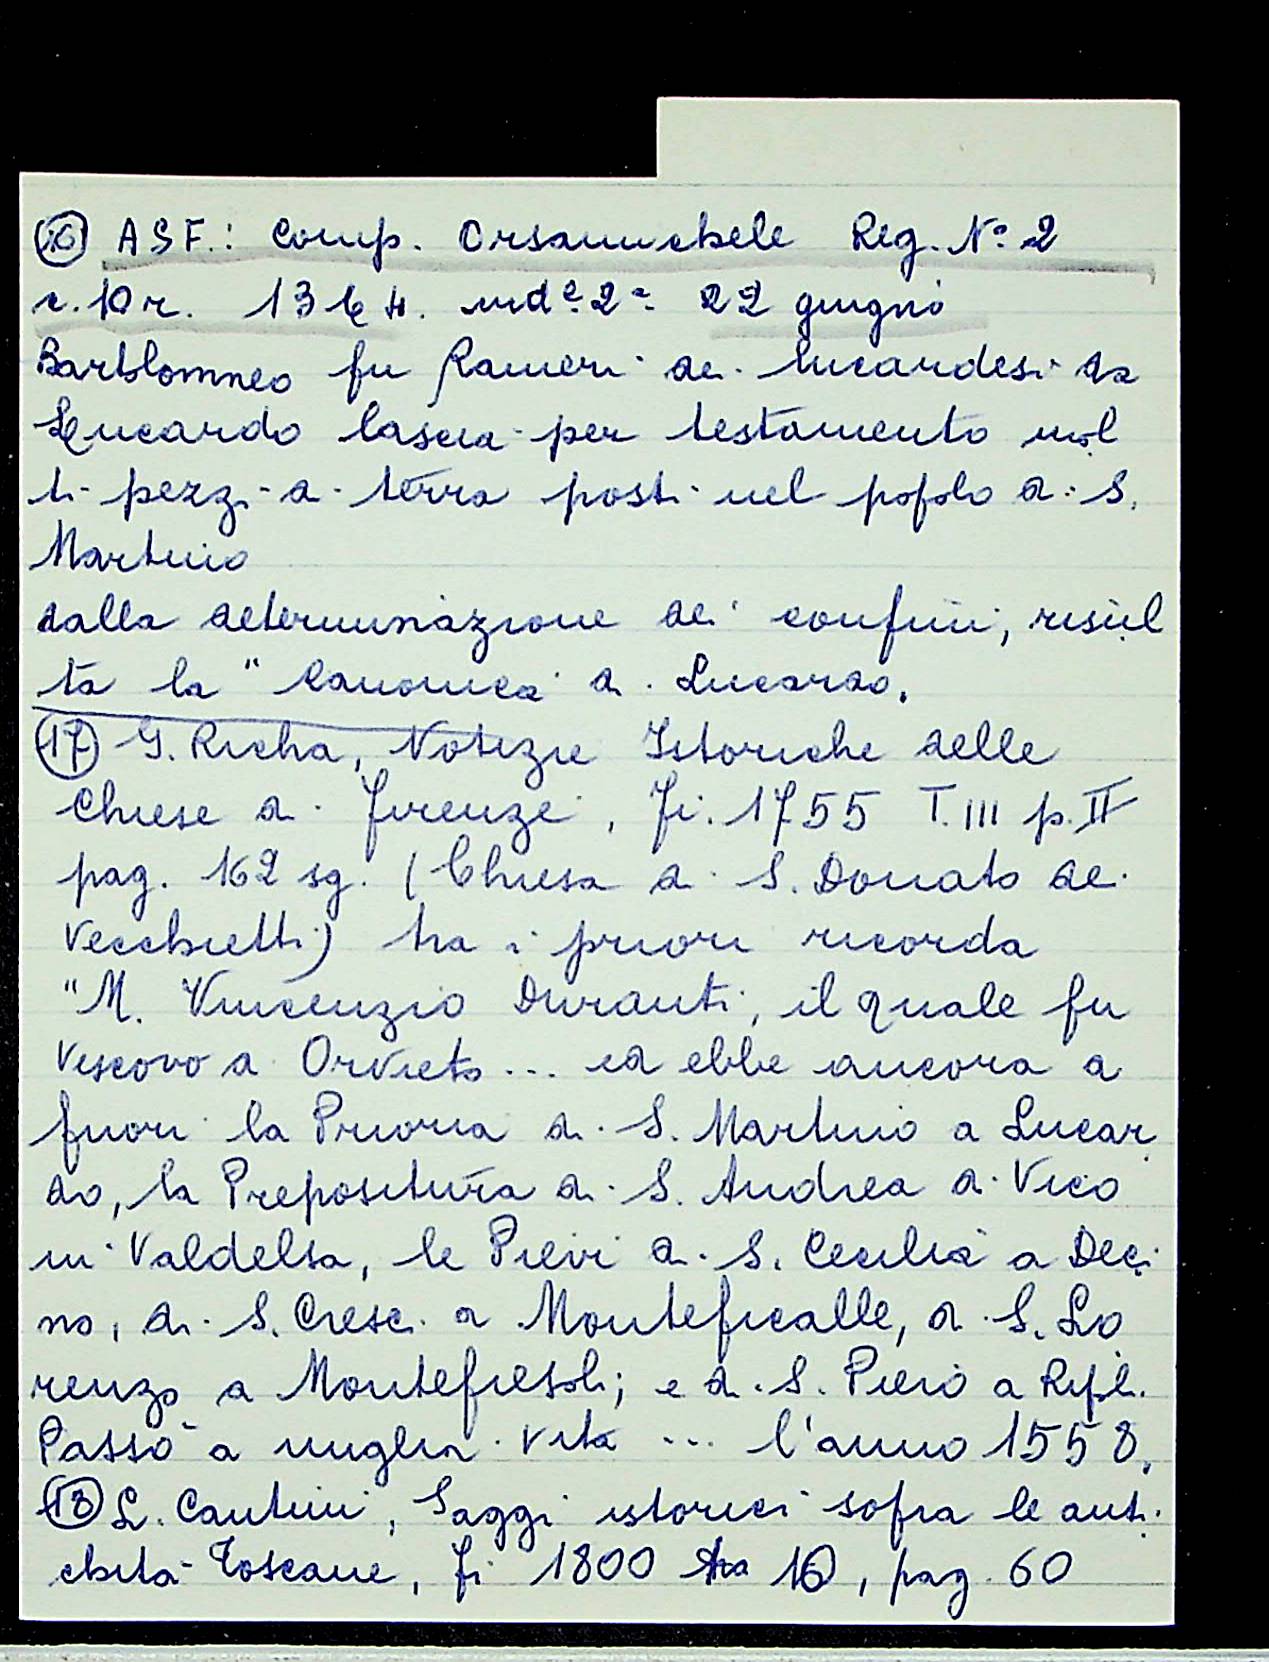 (16) ASF.: Comp. Orsanmichele Reg. Nº 2
c. 10 r. 1364. indº. 2ª 22 giugno
Bartolommeo fu Ranieri dei Lucardesi da
Lucardo lascia per testamento mol
ti pezzi di terra posti nel popolo di S.
Martino
dalla determinazione dei confini, risul
ta la "Canonica di Lucardo.
(17) G. Richa, Notizie Istoriche delle
Chiese di Firenze, Fi. 1755 T. III p. II
pag. 162 sg. (Chiesa di S. Donato dei
Vecchietti) tra i priori ricorda
"M. Vincenzio Duranti, il quale fu
Vescovo d Orvieto... ed ebbe ancora di
fuori la Prioria di S. Martino a Lucar
do, la Prepositura di S. Andrea a Vico
in Valdelsa, le Pievi di S. Cecilia a Deci
mo, di S. Cresci a Monteficalle, di S. Lo
renzo a Montefiesoli; e di S. Piero a Ripoli.
Passò a miglior vita ... l'anno 1558.
(18) L. Cantini, Saggi istorici sopra le anti
chità Toscane, Fi 1800 16, pag. 60